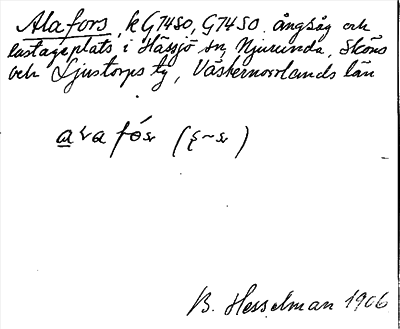 Alafors, k G7480, G7450. ångsåg och
lastageplats i Hässjö sn, Njurunda, Sköns
och Ljustorps tg, Västernorrlands län
B. Hesselman 1906